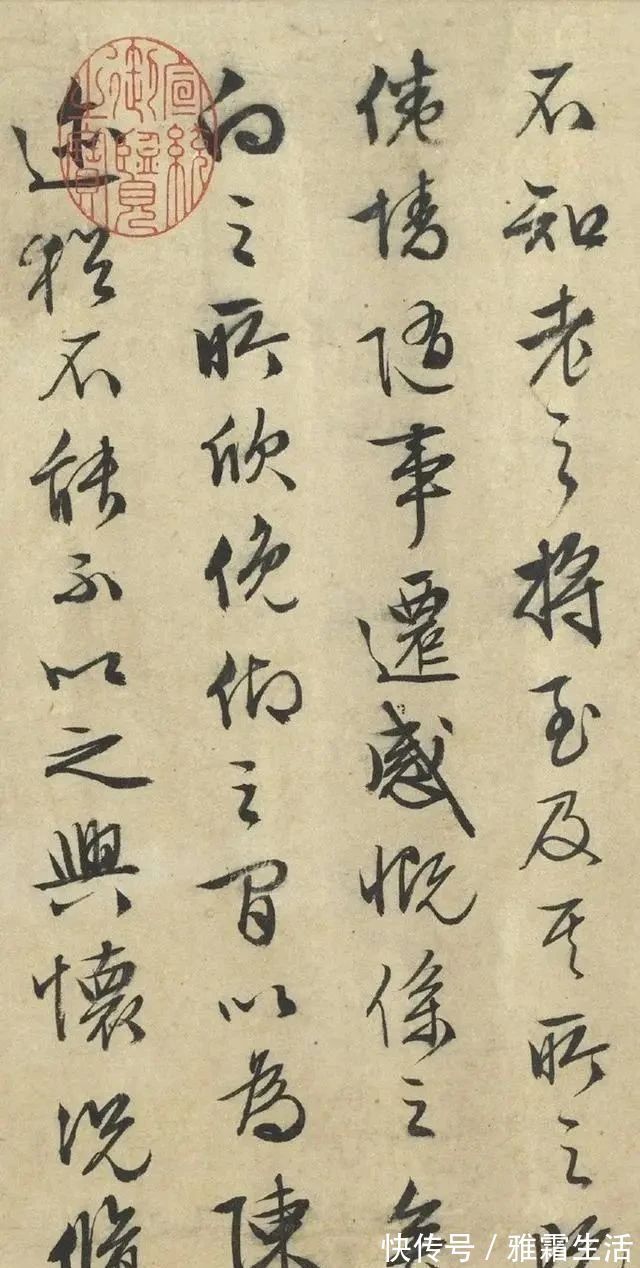 不知老之將至及其所之
倦情隨事遷感慨係之矣
向之所欣俛仰之間以為陳
迹猶不能不以之興懷況脩
宣統御覽之寶
快传号 / 雅霜生活